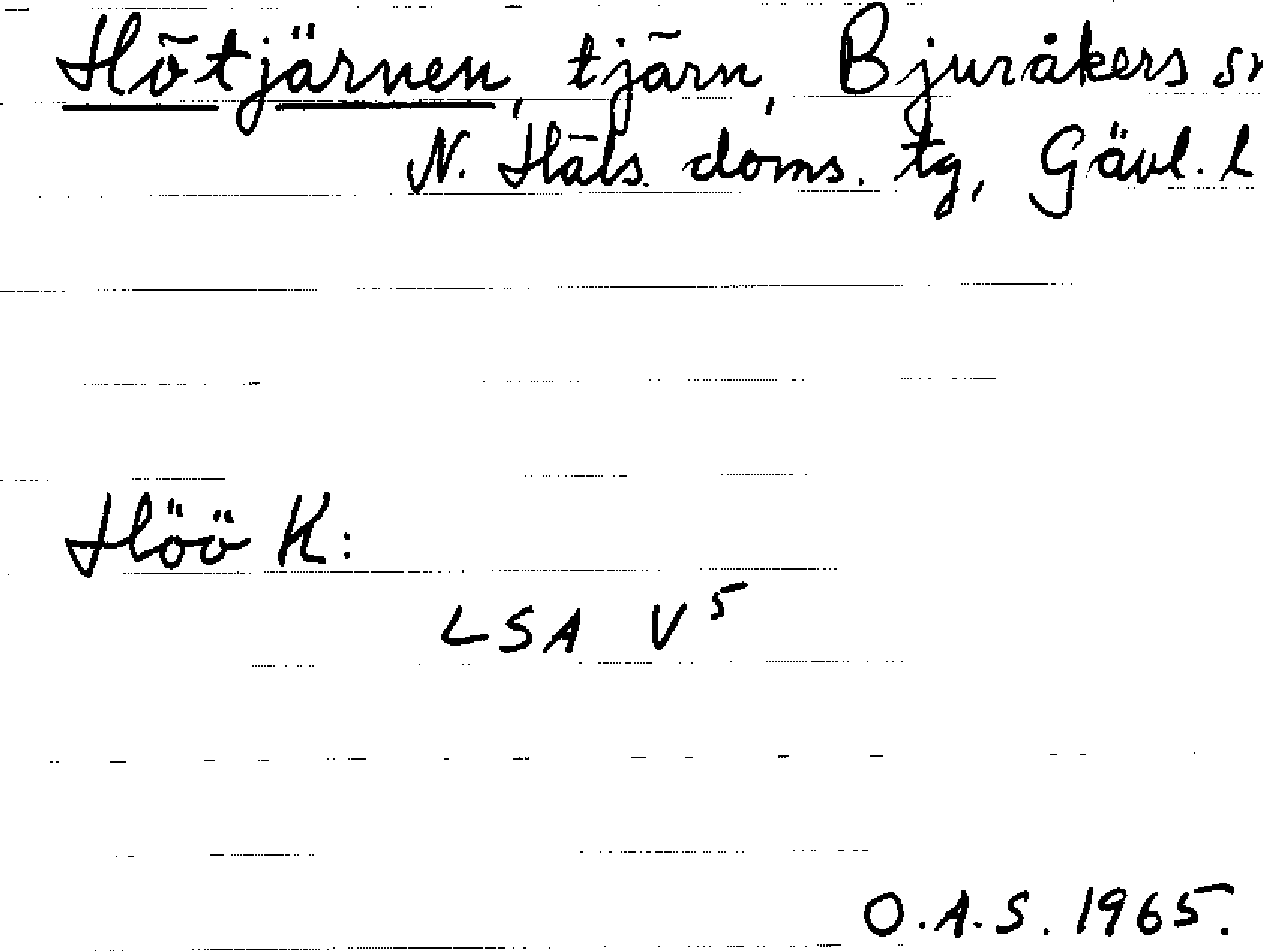 Hötjärnen, tjärn, Bjuråkers sn
N. Häls. doms. tg, Gävl. l
Höö K:
LSA V⁵
O.A.S. 1965.